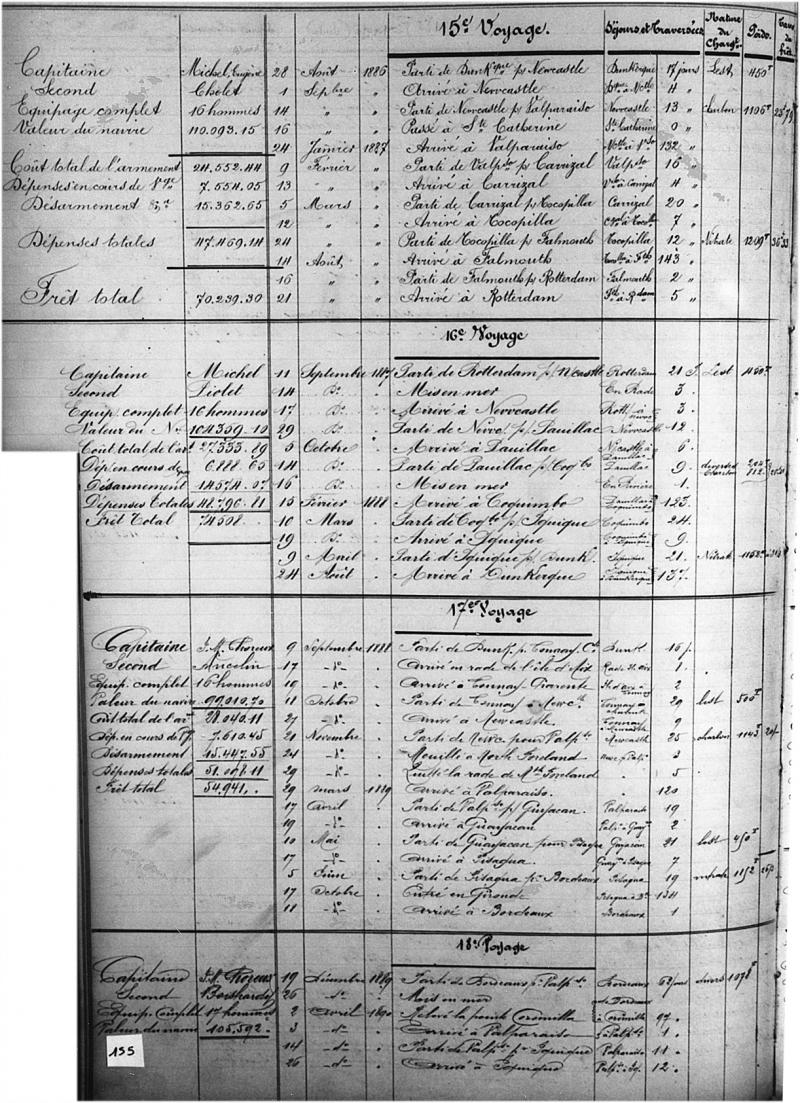 15e Voyage. Séjours et Traversées Nature du Chargt. Poids.
Capitaine Michel, Eugène 28 Août 1886 Parti de Dunkque p/ Newcastle Dunkerque 17 jours Lest 450T
Second Cholet 1 Septbre " Arrivé à Newcastle 4 "
Equipage complet 16 hommes 14 " " Parti de Newcastle p/ Valparaiso Newcastle 13 " Charbon 1106T
Valeur du navire 110.093.15 16 " " Passé à Ste Catherine Ste Catherine 0 "
24 Janvier 1887 Arrivé à Valparaiso 132 "
Coût total de l'armement 24.552.44 9 Février " Parti de Valpso p/ Carrizal Valpso 16 "
Dépenses en cours de Vge 7.554.05 13 " " Arrivé à Carrizal Vso à Carrizal 4 "
Désarmement 15.362.65 5 Mars " Parti de Carrizal p/ Tocopilla Carrizal 20 "
12 " " Arrivé à Tocopilla 7 "
Dépenses totales 47.469.14 24 " " Parti de Tocopilla p/ Falmouth Tocopilla 12 " Nitrate 1209T
14 Août " Arrivé à Falmouth 143 "
16 " " Parti de Falmouth p/ Rotterdam Falmouth 2 "
Frêt total 70.239.30 21 " " Arrivé à Rotterdam 5 "
16e Voyage
Capitaine Michel 11 Septembre 1887 Parti de Rotterdam p/ Newcastle Rotterdam 21 J. Lest 460T
Second Piolet 14 Do. Mis en mer En Rade 3
Equip. complet 16 hommes 17 Do. Arrivé à Newcastle 3
Valeur du Nre 104359.10 29 Do. Parti de Newc. p/ Pauillac Newcastle 12
Coût total de l'art 27.333.89 5 Octobre Arrivé à Pauillac 6
Dép. en cours de 6.888.65 14 Do. Parti de Pauillac p/ Coqbo Pauillac 9 diverses charbon
Désarmement 14574.07 16 Do. Mis en mer En Rivière 1
Dépenses Totales 48.796.81 15 Février 1888 Arrivé à Coquimbo 123
Frêt Total 74508 10 Mars Parti de Coqbo p/ Iquique Coquimbo 24
19 Do. Arrivé à Iquique 9
9 Avril Parti d'Iquique p/ Dunk. Iquique 21 Nitrate
24 Août Arrivé à Dunkerque 137
17e Voyage
Capitaine J.M. Choreux 9 Septembre 1888 Parti de Dunk. p. Tonnay Cte Dunk 16 j.
Second Ancelin 17 -do- Arrivé en rade de l'île d'Aix Rade St Aix 1
Equip. complet 16 hommes 10 -do- Arrivé à Tonnay-Charente 2
Valeur du navire 99.010.70 11 Octobre Parti de Tonnay à Newcle 29 lest 500T
Coût total de l'art 28.040.11 21 -do- Arrivé à Newcastle 9
Dép. en cours de 7.610.45 21 Novembre Parti de Newc pour Valpso Newcastle 25 charbon 1143T
Désarmement 15.447.55 24 -do- Mouillé à North Foreland 3
Dépenses totales 51.098.11 29 -do- Quitté la rade de Nth Foreland 5
Frêt total 54.941. 29 mars 1889 Arrivé à Valparaiso 120
17 avril Parti de Valpso p/ Guayacan Valparaiso 19
19 -do- Arrivé à Guayacan 2
10 Mai Parti de Guayacan pour Pisagua Guyacan 21 lest 450T
17 -do- Arrivé à Pisagua 7
5 Juin Parti de Pisagua p. Bordeaux Pisagua 19 nitrate 1152T
17 Octobre Entré en Gironde 134
11 -do- Arrivé à Bordeaux Bordeaux 1
18e Voyage
Capitaine J.M. Choreux 19 Décembre 1889 Parti de Bordeaux p. Valpso Bordeaux 62 jours divers 1078T
Second 26 -do- Mis en mer
Equip. Complet 17 hommes 2 avril 1890 Relevé la pointe Coronilla 97
Valeur du navire 105.592. 3 -do- Arrivé à Valparaiso 1
14 -do- Parti de Valpso p. Iquique Valparaiso 11
26 -do- Arrivé à Iquique 12
155